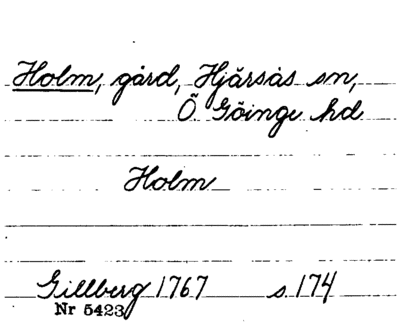 Holm, gård, Hjärsås sn,
Ö Göinge hd
Holm
Gillberg 1767 s 174
Nr 5423